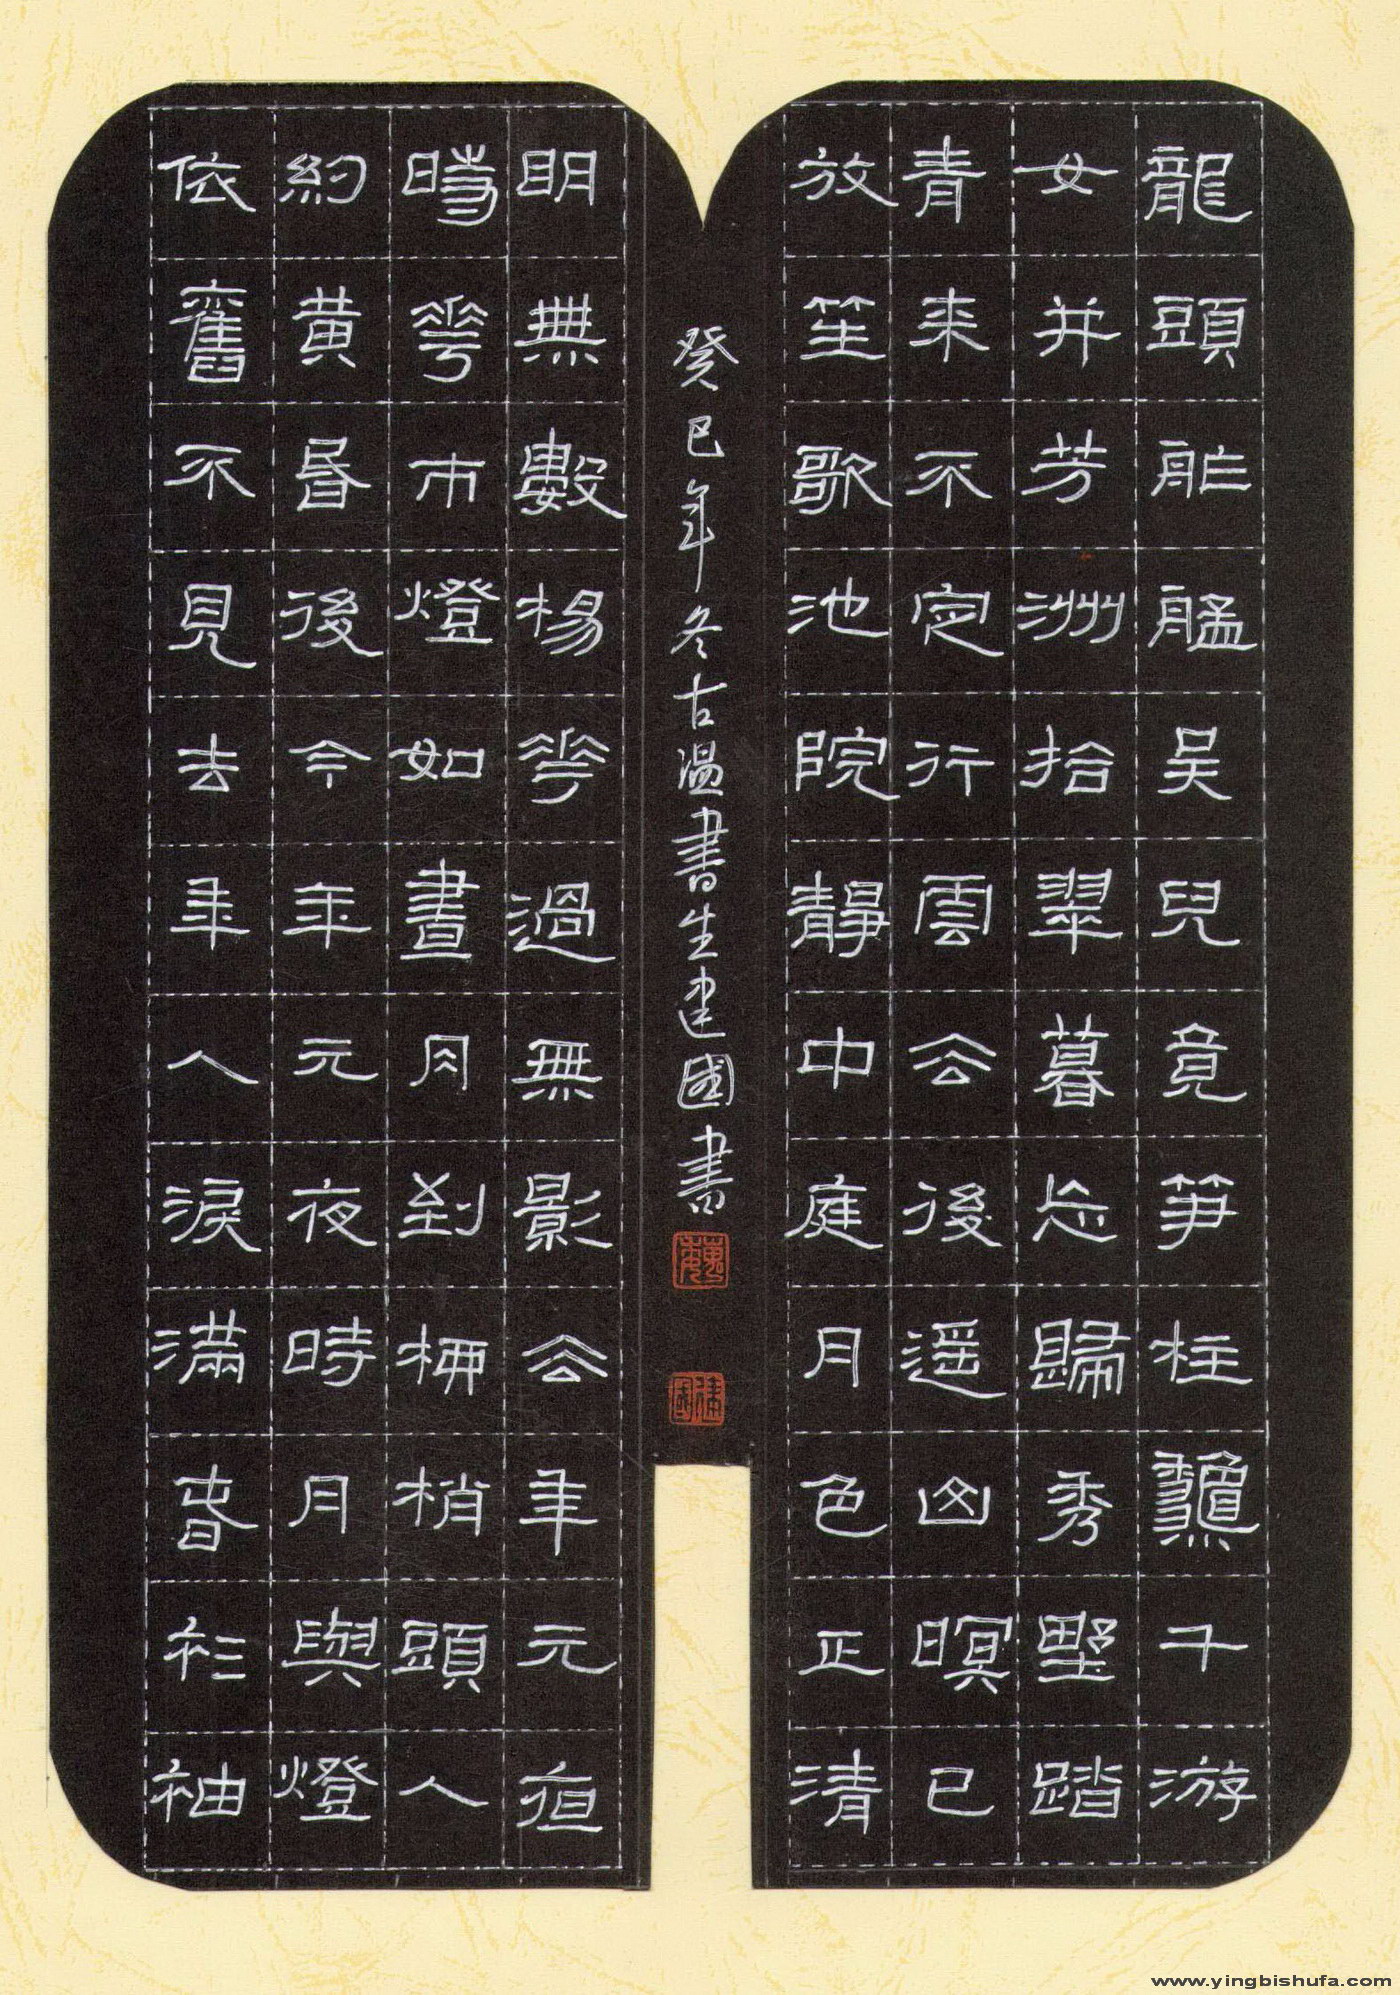 龍頭舴艋吴兒竟笋柱龝千游
女并芳洲拾翠暮忘歸秀野踏
青來不定行雲厺後遥山暝已
放笙歌池院靜中庭月色正清
明無數楊花過無影厺年元夜
時花市燈如晝月到柳梢頭人
約黄昏後今年元夜時月與燈
依舊不見去年人淚滿春衫袖
癸巳年冬古温書生建國書
魏
建國
www.yingbishufa.com